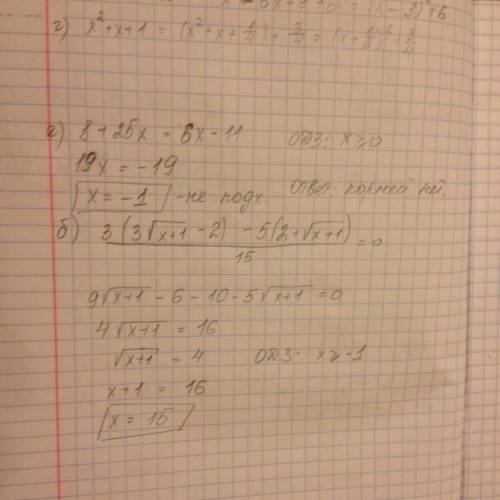 = (x - 3)² + 6
г) x² + x + 1 = (x² + x + 1/4) + 3/4 = (x + 1/2)² + 3/4
а) 8 + 25x = 6x - 11 ОДЗ: x ≥ 0
19x = -19
x = -1 - не подх. Ответ: корней нет.
б) (3(3√(x+1) - 2) - 5(2 + √(x+1)))/15 = 0
9√(x+1) - 6 - 10 - 5√(x+1) = 0
4√(x+1) = 16
√(x+1) = 4 ОДЗ: x ≥ -1
x + 1 = 16
x = 15